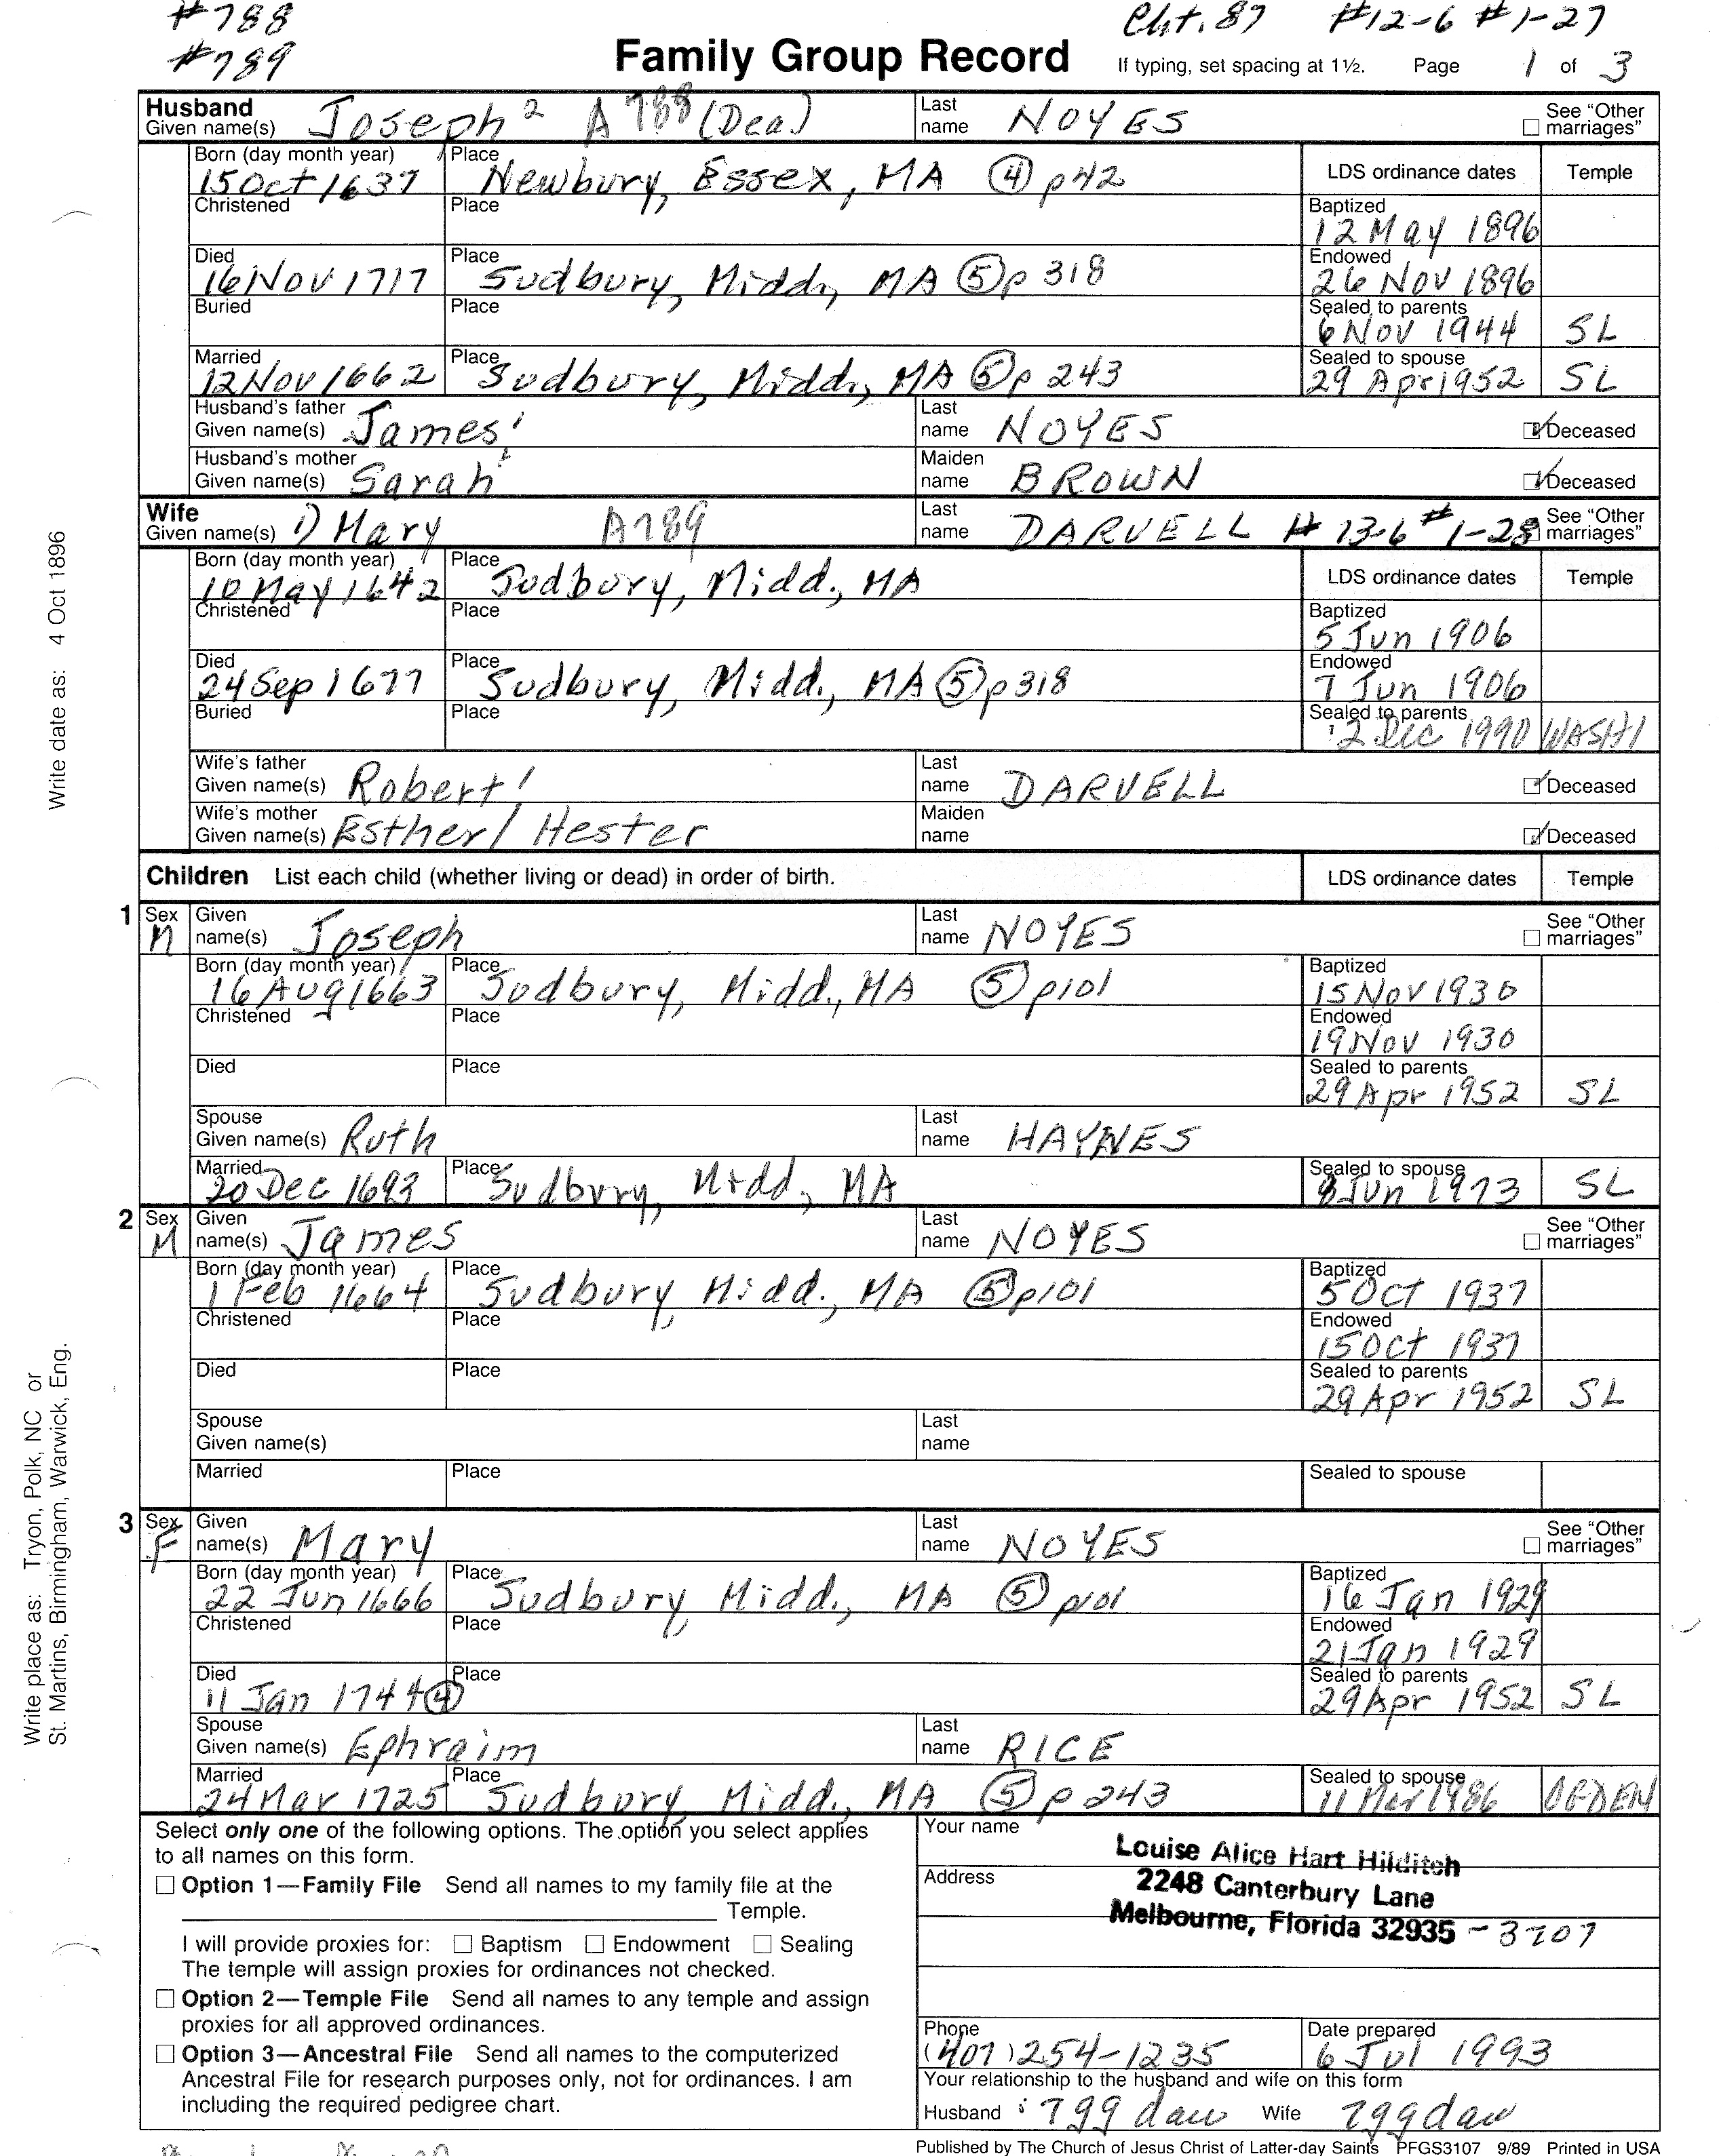 #788 Cht. 87 #12-6 #1-27
#789 Family Group Record If typing, set spacing at 1½. Page 1 of 3
Husband Given name(s) Joseph² A788 (Dea) Last name NOYES See "Other marriages"
Born (day month year) 15 Oct 1637 Place Newbury, Essex, MA ④ p42 LDS ordinance dates Temple
Christened Place Baptized 12 May 1896
Died 16 Nov 1717 Place Sudbury, Midd, MA ⑤ p 318 Endowed 26 Nov 1896
Buried Place Sealed to parents 6 Nov 1944 SL
Married 12 Nov 1662 Place Sudbury, Midd, MA ⑤ p 243 Sealed to spouse 29 Apr 1952 SL
Husband's father Given name(s) James¹ Last name NOYES Deceased
Husband's mother Given name(s) Sarah¹ Maiden name BROWN Deceased
Wife Given name(s) 1) Mary A789 Last name DARVELL # 13-6 #1-28 See "Other marriages"
Born (day month year) 10 May 1642 Place Sudbury, Midd., MA LDS ordinance dates Temple
Christened Place Baptized 5 Jun 1906
Died 24 Sep 1677 Place Sudbury, Midd., MA ⑤ p318 Endowed 7 Jun 1906
Buried Place Sealed to parents 2 Dec 1990 WASHI
Wife's father Given name(s) Robert¹ Last name DARVELL Deceased
Wife's mother Given name(s) Esther/Hester Maiden name Deceased
Children List each child (whether living or dead) in order of birth. LDS ordinance dates Temple
1 Sex M Given name(s) Joseph Last name NOYES See "Other marriages"
Born (day month year) 16 Aug 1663 Place Sudbury, Midd., MA ⑤ p101 Baptized 15 Nov 1930
Christened Place Endowed 19 Nov 1930
Died Place Sealed to parents 29 Apr 1952 SL
Spouse Given name(s) Ruth Last name HAYNES
Married 20 Dec 1693 Place Sudbury, Midd, MA Sealed to spouse Jun 1973 SL
2 Sex M Given name(s) James Last name NOYES See "Other marriages"
Born (day month year) 1 Feb 1664 Place Sudbury, Midd., MA ⑤ p101 Baptized 5 Oct 1937
Christened Place Endowed 15 Oct 1937
Died Place Sealed to parents 29 Apr 1952 SL
Spouse Given name(s) Last name
Married Place Sealed to spouse
3 Sex F Given name(s) Mary Last name NOYES See "Other marriages"
Born (day month year) 22 Jun 1666 Place Sudbury, Midd., MA ⑤ p101 Baptized 16 Jan 1929
Christened Place Endowed 21 Jan 1929
Died 11 Jan 1744 ④ Place Sealed to parents 29 Apr 1952 SL
Spouse Given name(s) Ephraim Last name RICE
Married 24 Mar 1725 Place Sudbury, Midd., MA ⑤ p 243 Sealed to spouse 11 Mar 1986 OGDEN
Select only one of the following options. The option you select applies
to all names on this form.
Option 1—Family File Send all names to my family file at the
Temple.
I will provide proxies for: Baptism Endowment Sealing
The temple will assign proxies for ordinances not checked.
Option 2—Temple File Send all names to any temple and assign
proxies for all approved ordinances.
Option 3—Ancestral File Send all names to the computerized
Ancestral File for research purposes only, not for ordinances. I am
including the required pedigree chart.
Your name Louise Alice Hart Hilditch
Address 2248 Canterbury Lane
Melbourne, Florida 32935 - 3707
Phone (407) 254-1235 Date prepared 6 Jul 1993
Your relationship to the husband and wife on this form
Husband 7gg dau Wife 7gg dau
Published by The Church of Jesus Christ of Latter-day Saints PFGS3107 9/89 Printed in USA
Write date as: 4 Oct 1896
Write place as: Tryon, Polk, NC or
St. Martins, Birmingham, Warwick, Eng.